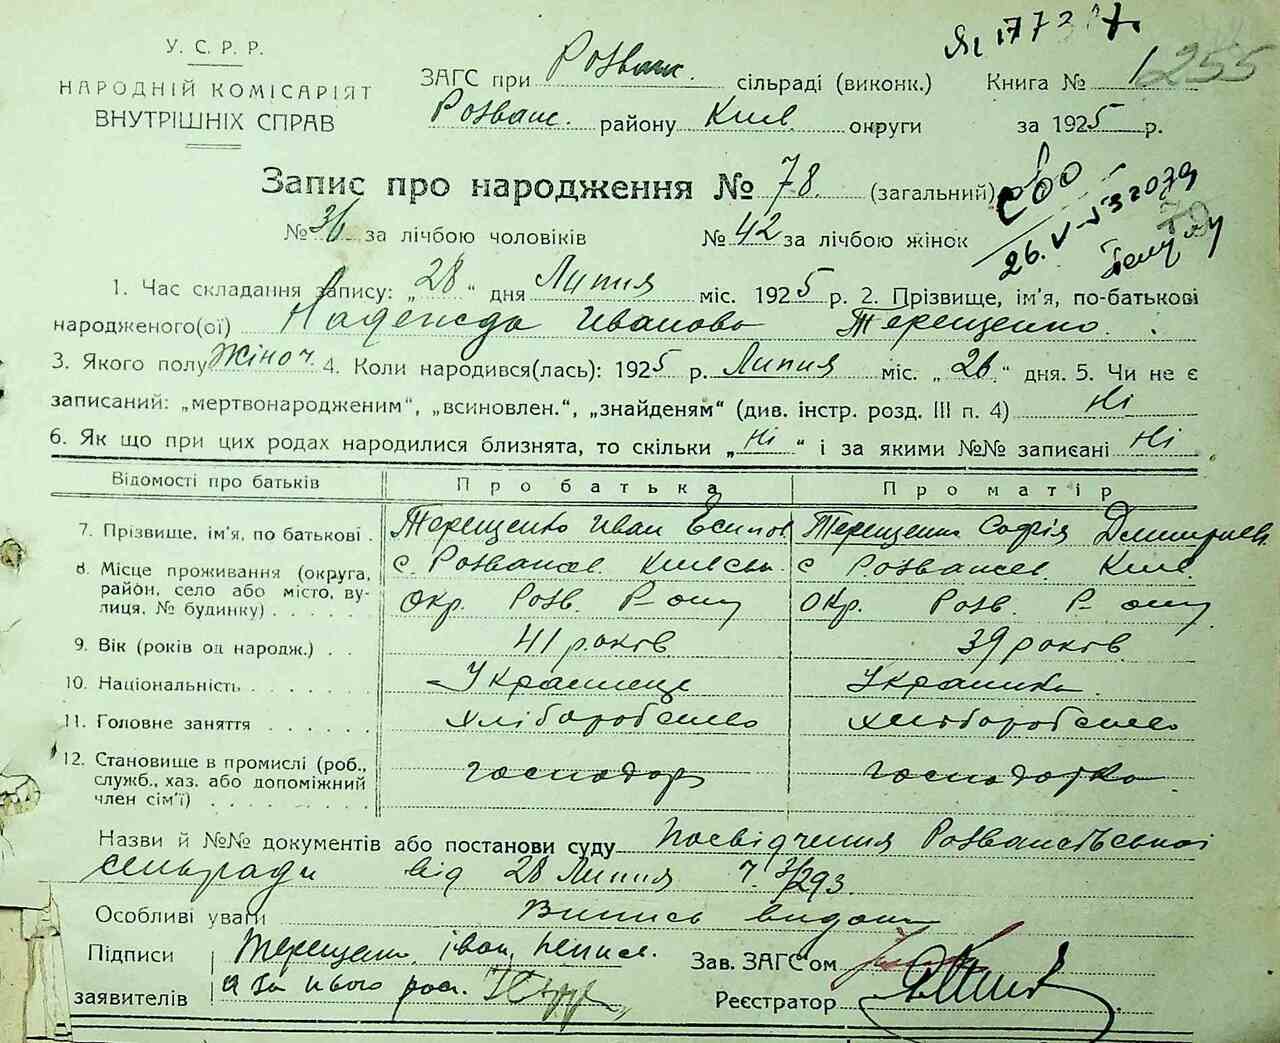 У. С. Р. Р.
НАРОДНІЙ КОМІСАРІЯТ
ВНУТРІШНІХ СПРАВ
ЗАГС при Розваж. сільраді (виконк.) Книга № 1 255
Розваж. району Київ. округи за 1925 р.
Запис про народження № 78. (загальний)
№ 36 за лічбою чоловіків № 42 за лічбою жінок
26.V
1. Час складання запису: „28“ дня Липня міс. 1925 р. 2. Прізвище, ім'я, по-батькові
народженого(ої) Надежда Иванова Терещенко.
3. Якого полу Жіноч. 4. Коли народився(лась): 1925 р. Липня міс. „26.“ дня. 5. Чи не є
записаний: „мертвонародженим“, „всиновлен.“, „знайденям“ (див. інстр. розд. III п. 4) Ні
6. Як що при цих родах народилися близнята, то скільки „Ні“ і за якими №№ записані Ні
Відомості про батьків Про батька Про матір
7. Прізвище, ім'я, по батькові . Терещенко Иван Есипов. Терещенко Софія Дмитриев.
8. Місце проживання (округа, с. Розважев. Киевськ. с. Розважев. Київ.
район, село або місто, ву-
лиця, № будинку) . . . . . окр. Розв. Р-ону окр. Розв. Р-ону
9. Вік (років од народж.) . . 41 років. 39 років.
10. Національність . . . . . . Українець Українка.
11. Головне заняття . . . . . . хліборобство хліборобство
12. Становище в промислі (роб., господар господарка
служб., хаз. або допоміжний
член сім'ї) . . . . . . . .
Назви й №№ документів або постанови суду Посвідчення Розважівської
сельради від 28 Липня ч. 3/293.
Особливі уваги Випись видана
Підписи Терещенко іван непис.
заявителів а за нього рос.
Зав. ЗАГС'ом
Реєстратор